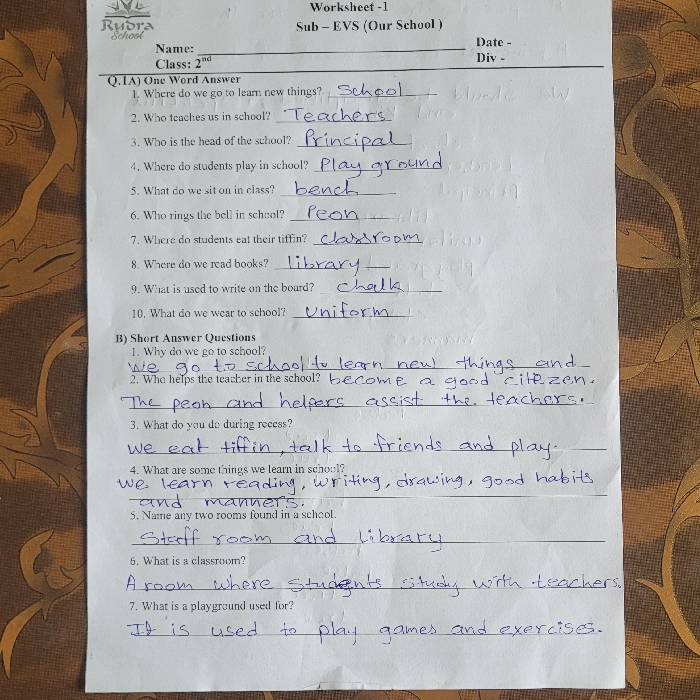 Rudra
School
Worksheet -1
Sub – EVS (Our School )
Name: ____ Date -
Class: 2nd Div -
Q.1A) One Word Answer
1. Where do we go to learn new things? School
2. Who teaches us in school? Teachers
3. Who is the head of the school? Principal
4. Where do students play in school? Play ground
5. What do we sit on in class? bench
6. Who rings the bell in school? Peon
7. Where do students eat their tiffin? classroom
8. Where do we read books? library
9. What is used to write on the board? chalk
10. What do we wear to school? Uniform
B) Short Answer Questions
1. Why do we go to school?
We go to school to learn new things and
2. Who helps the teacher in the school? become a good citezen.
The peon and helpers assist the teachers.
3. What do you do during recess?
We eat tiffin, talk to friends and play.
4. What are some things we learn in school?
We learn reading, writing, drawing, good habits
and manners.
5. Name any two rooms found in a school.
Staff room and library
6. What is a classroom?
A room where students study with teachers.
7. What is a playground used for?
It is used to play games and exercises.